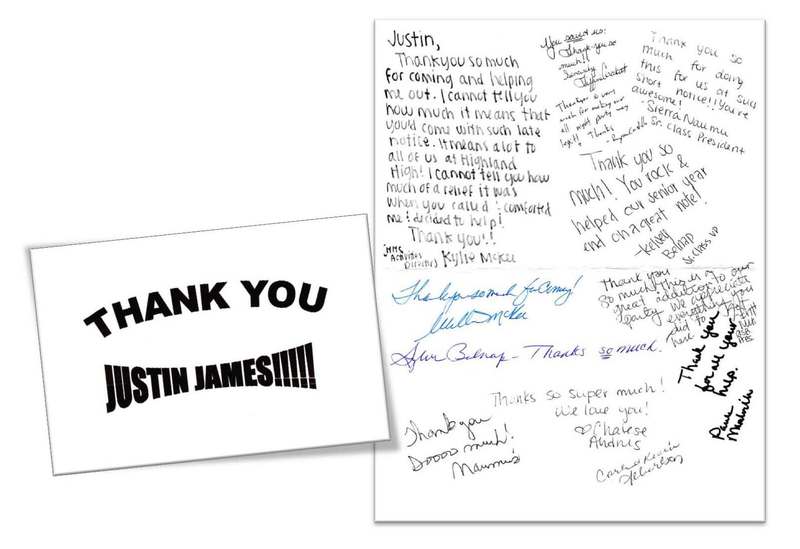 THANK YOU
JUSTIN JAMES!!!!!
Justin,
Thankyou so much
for coming and helping
me out. I cannot tell you
how much it means that
you'd come with such late
notice. It means a lot to
all of us at Highland
High! I cannot tell you how
much of a relief it was
when you called & comforted
me & decided to help!
Thank you!!
HHS
Activities
Director Kylie McKee
You saved us!
Thank-you so
much!!
Sincerely
Thank you so
much for doing
this for us at such
short notice!! You're
awesome!
-Sierra Naumu
Sr. Class President
Thank you so very
much for making our
all night party way
Thanks
Thank you so
much! You rock &
helped our senior year
end on a great note!
-Kelsey
Belnap
Sr. Class VP
Thank you so much for coming!
McKee
Belnap - Thanks so much.
Thank you
so much. This is a
great addition to our
party. We appreciate
everything you
did to
here
Thank you
for all your
help.
Thanks so super much!
We love you!
♡ Chalese
Andrus
Thank you
Soooo much!
Naumu's